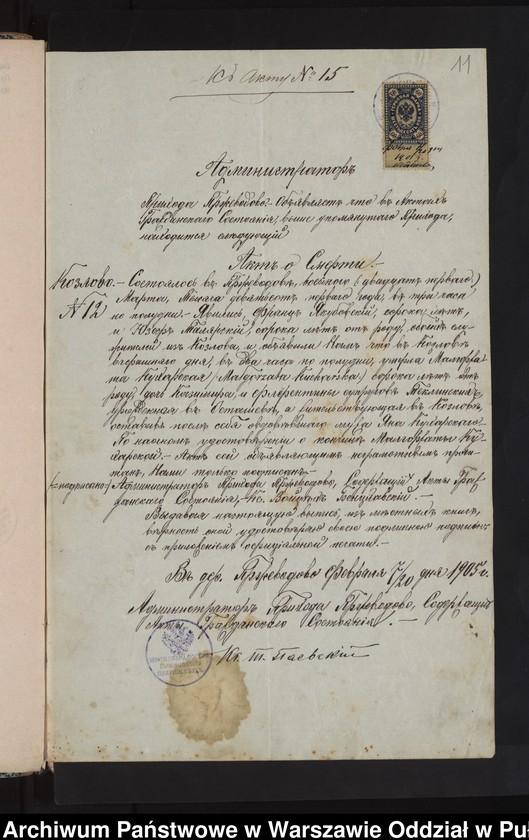 11
Къ Акту № 15
Администраторъ
Прихода Пржеводово. Объявляетъ что въ Актахъ
Гражданскаго Состоянія, выше упомянутаго Прихода,
находится слѣдующій
Актъ о Смерти.
Козлово. – Состоялось въ Пржеводовѣ, восьмого (двадцать перваго)
№ 12 Марта, тысяча девятьсотъ перваго года, въ три часа
по полудни. – Явились, Францъ Якубовскій, сорока лѣтъ,
и Юзефъ сорока лѣтъ отъ роду,
изъ Козлова, и объявили Намъ что въ Козловѣ
вчерашняго дня, въ два часа по полудни, умерла Малгожа-
та Кухарская (Małgorzata Kucharska) сорока лѣтъ отъ
роду, дочь Казимира, и Флорентины супруговъ
урожденная въ и жительствующая въ Козловѣ,
оставивъ послѣ себя овдовѣвшаго мужа Яна Кухарскаго. –
По настоящемъ удостовѣреніи о кончинѣ Малгоржаты Ку-
харской. – Актъ сей объявляющимъ неграмотнымъ прочи-
танъ, Нами только подписанъ. –
(подписано) Администраторъ Прихода Пржеводово, Содержащій Акты Граж-
данскаго Состоянія
Выдавая настоящую выпись, изъ книгъ,
вѣрность оной удостовѣряю своею подписью
съ приложеніемъ оффиціальной печати. –
Въ дер. Пржеводово Февраля 7/20 дня 1905 г.
Администраторъ Прихода Пржеводово, Содержащій
Акты Гражданскаго Состоянія. –
Кс. Т. Паевскій
Archiwum Państwowe w Warszawie Oddział w Pu